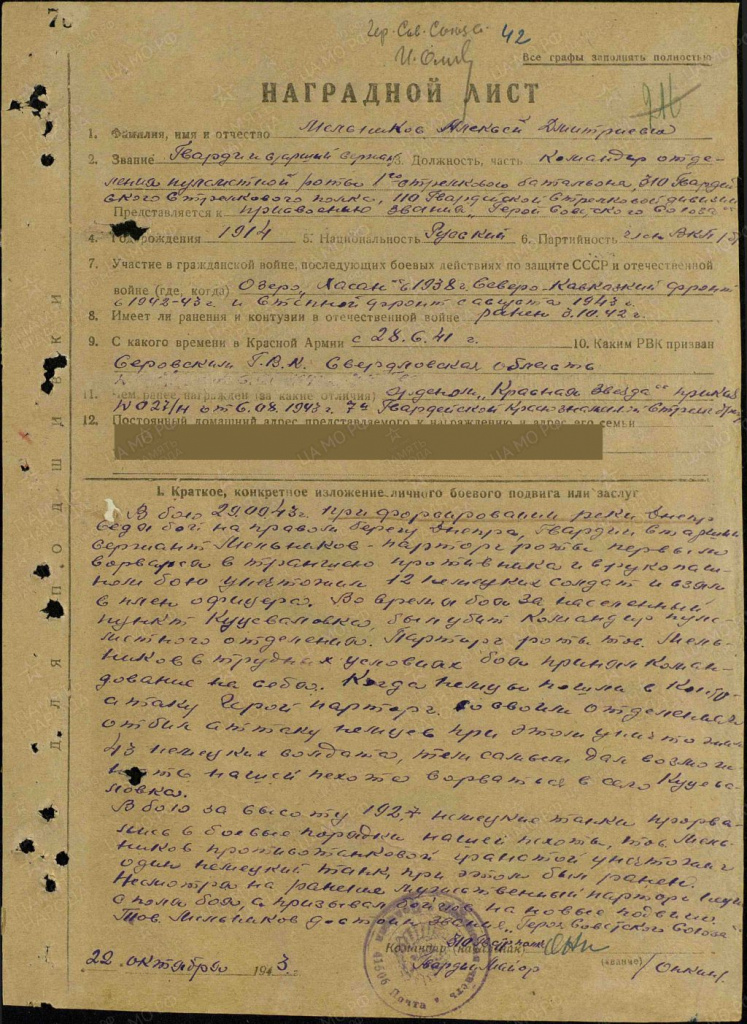 Гер. Сов. Союза 42
Все графы заполнять полностью
НАГРАДНОЙ ЛИСТ
1. Фамилия, имя и отчество Мельников Алексей Дмитриевич
2. Звание Гвардии старший сержант Должность, часть Командир отде-
ления пулеметной роты 1го стрелкового батальона, 310 Гвардей
ского стрелкового полка, 110 Гвардейской стрелковой дивизии
Представляется к присвоению звания "Герой Советского Союза"
4. Год рождения 1914 5. Национальность Русский 6. Партийность член ВКП(б)
7. Участие в гражданской войне, последующих боевых действиях по защите СССР и отечественной
войне (где, когда) Озеро "Хасан" в 1938 г Северо-Кавказкий фронт
в 1942-43 г. и Степной фронт с августа 1943 г.
8. Имеет ли ранения и контузии в отечественной войне ранен 3.10.42 г.
9. С какого времени в Красной Армии с 28.6.41 г. 10. Каким РВК призван
Серовским Г.В.К. Свердловская область
11. Чем ранее награжден (за какие отличия) орденом "Красная Звезда" приказ
№ 027/н от 6.08.1943 г. 7й Гвардейской
12. Постоянный домашний адрес представляемого к награждению и адрес его семьи
I. Краткое, конкретное изложение личного боевого подвига или заслуг
В бою 29.09.43 г. при форсировании реки Днепр
ведя бой на правом берегу Днепра, Гвардии старший
сержант Мельников - парторг роты первым
ворвался в траншею противника и в рукопаш-
ном бою уничтожил 12 немецких солдат и взял
в плен офицера. Во время боя за населенный
пункт Куцеваловка, был убит командир пуле-
метного отделения. Парторг роты тов. Мель-
ников в трудных условиях боя принял коман-
дование на себя. Когда немцы пошли в контр-
атаку Герой парторг со своим отделением
отбил аттаку немцев при этом уничтожил
43 немецких солдата, тем самым дал возмож-
ность нашей пехоте ворваться в село Куцева-
ловка.
В бою за высоту 192,7 немецкие танки прорва-
лись в боевые порядки нашей пехоты, тов. Мель-
ников противотанковой гранатой уничтожил
один немецкий танк, при этом был ранен.
Несмотря на ранение мужественный парторг
с поля боя, а призывал бойцов на новые подвиги.
Тов. Мельников достоин звания "Герой Советского Союза"
Командир
Гвардии Майор (звание) /Онкин/
22 октября 1943 г.
41606 Почта
ДЛЯ ПОДШИВКИ